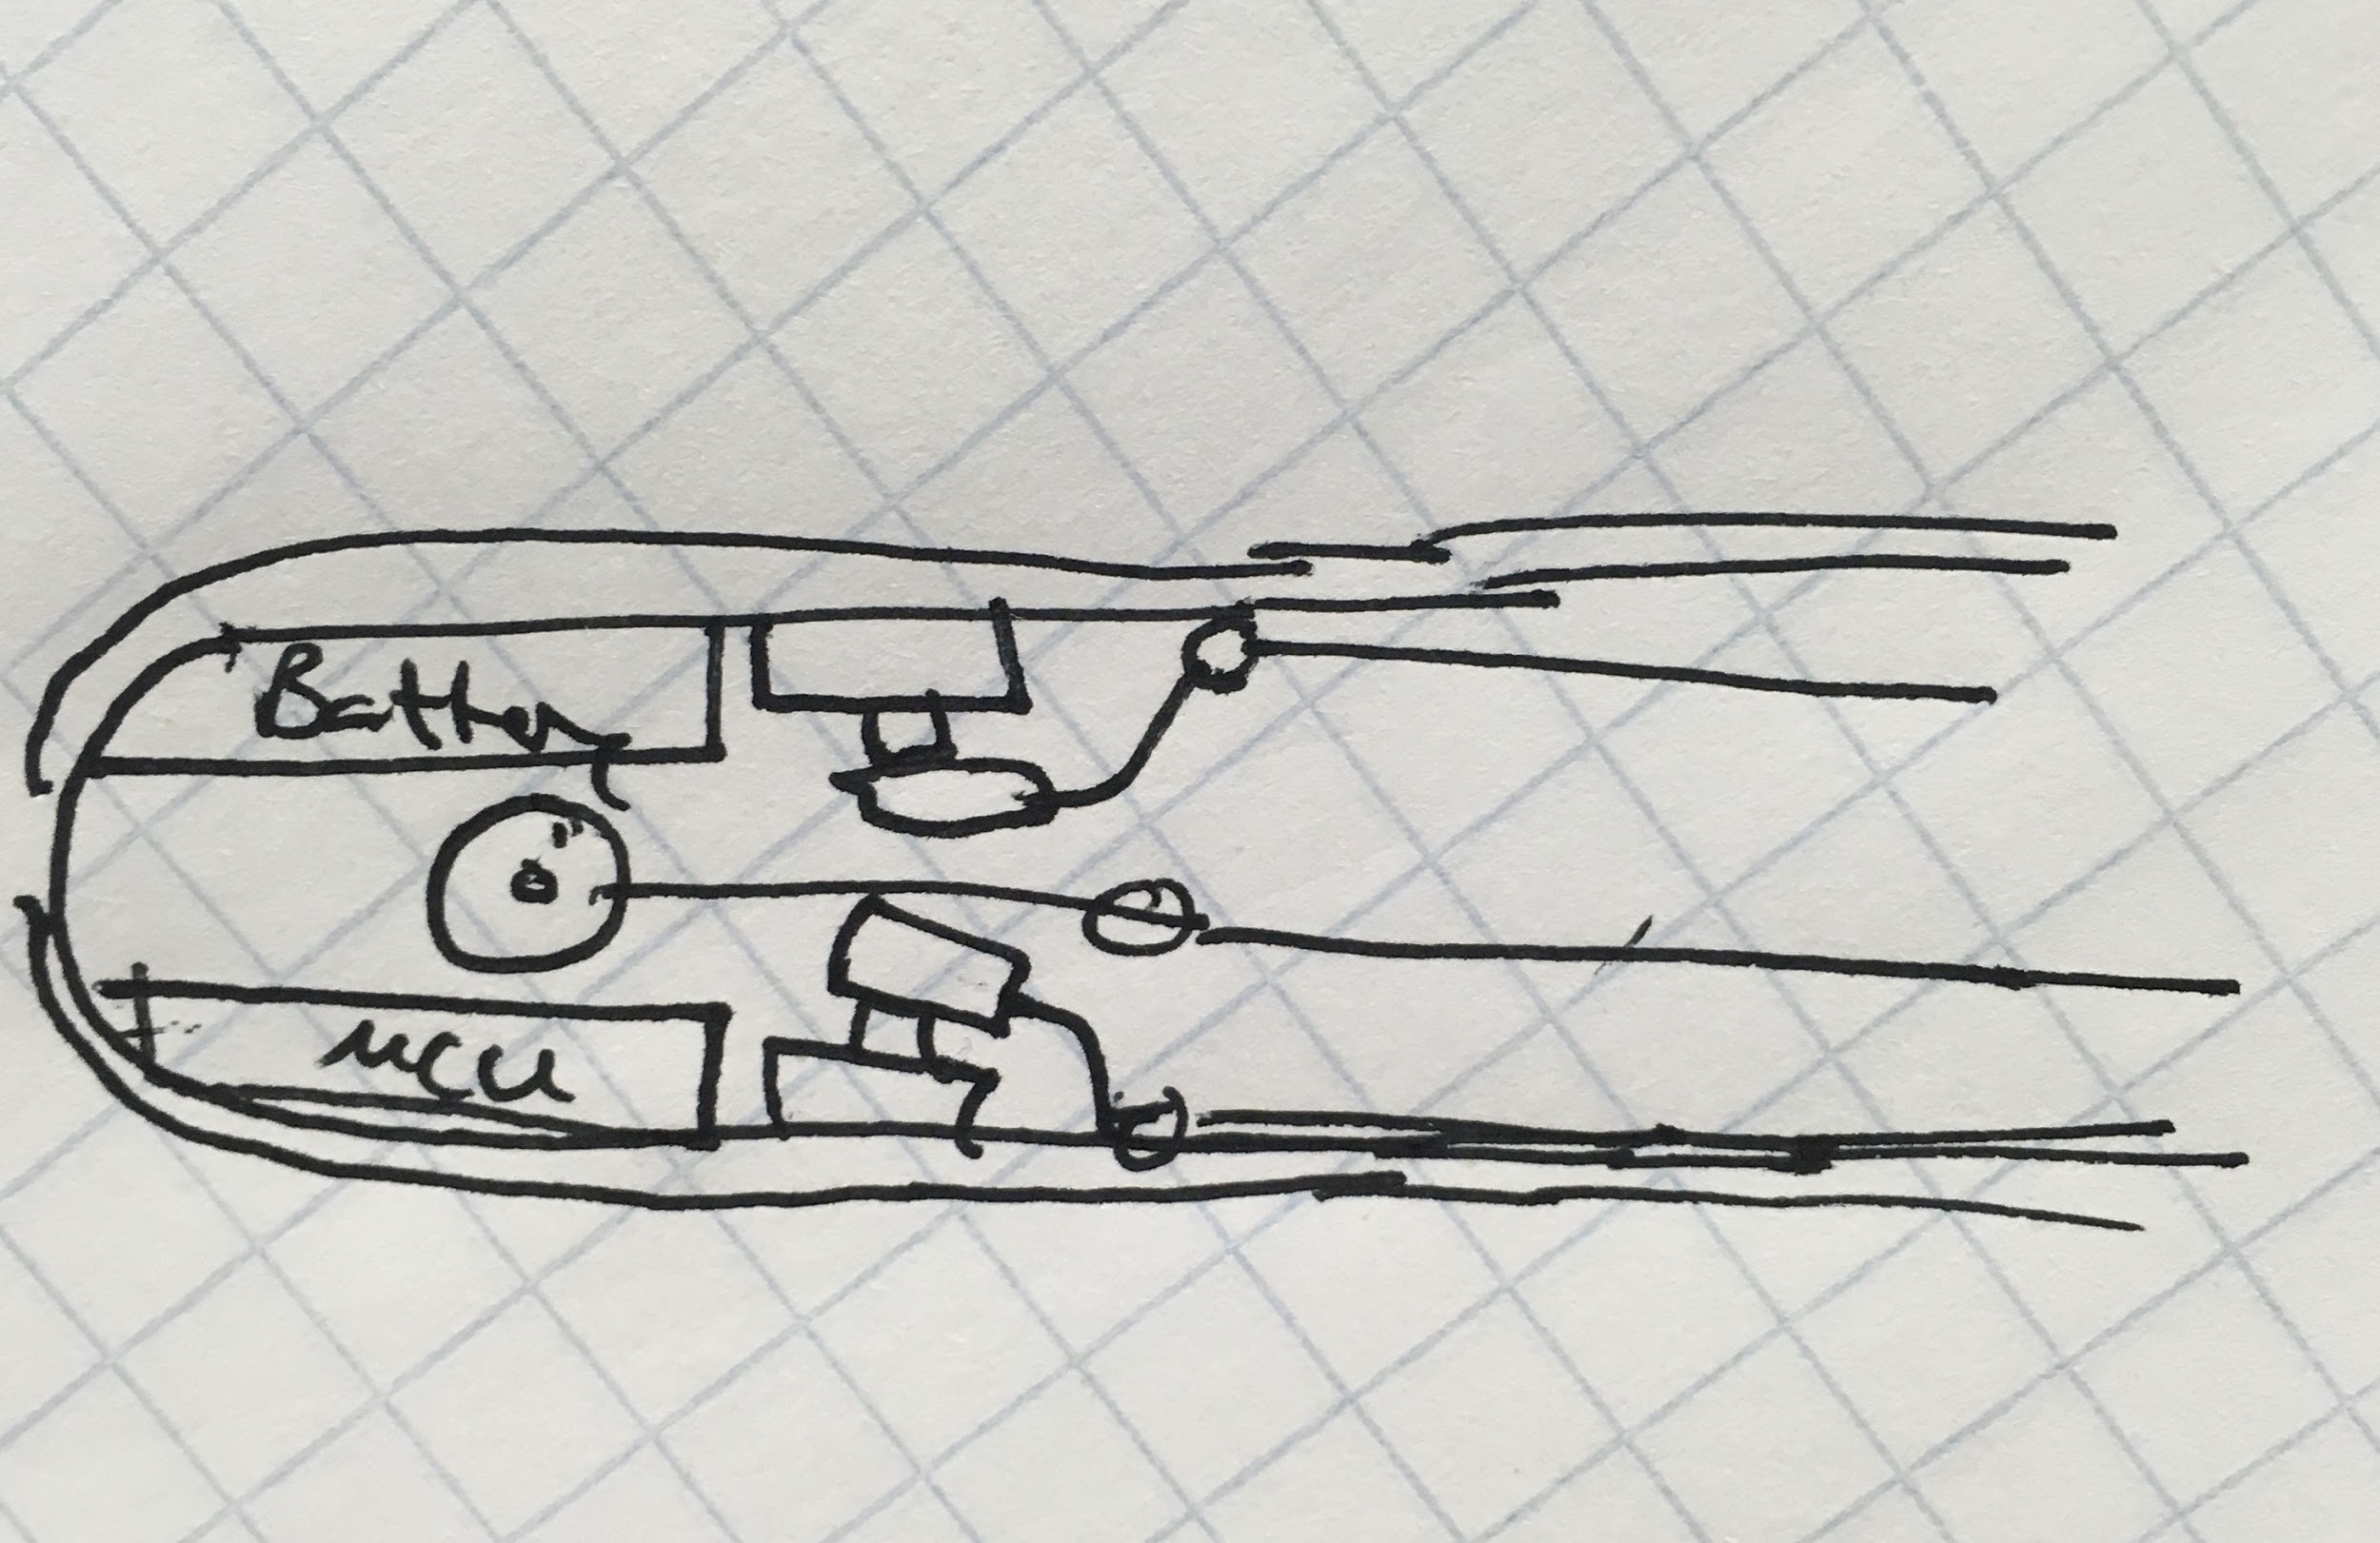 Battery
MCU